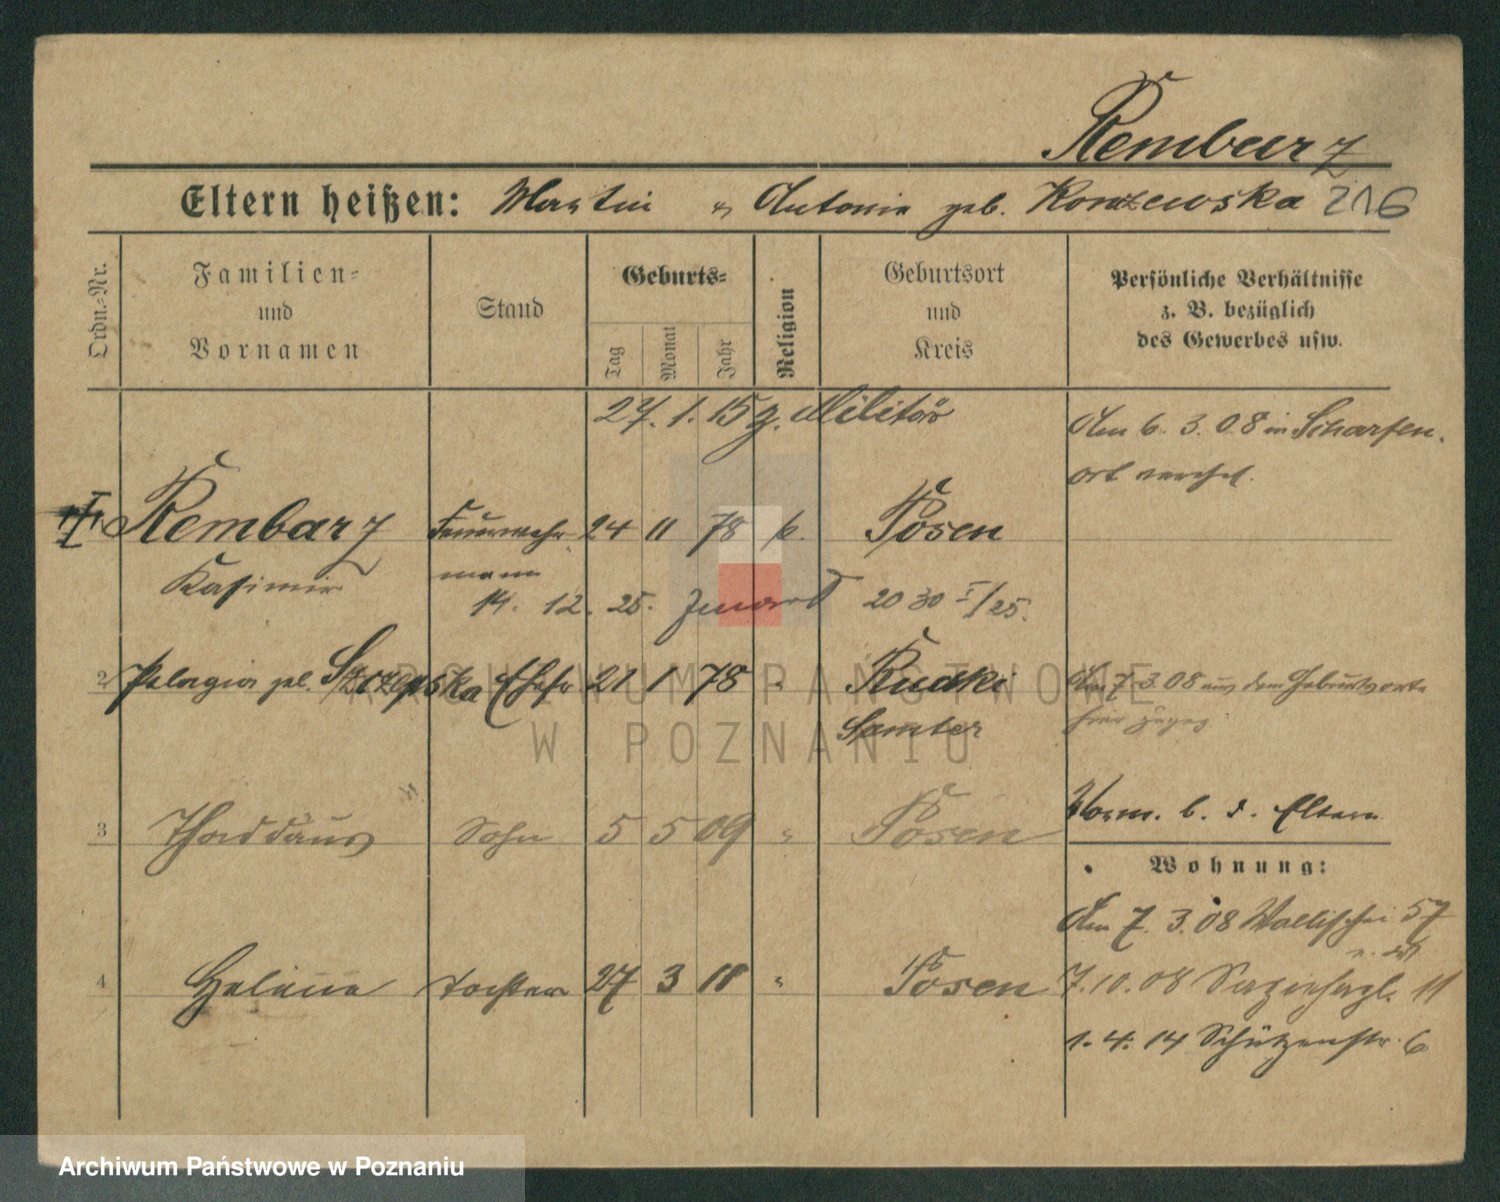 Rembarz
Eltern heißen: Martin u Antonie geb. Korzewska 216
Ordn.-Nr.
Familien- und Vornamen
Stand
Geburts-
Tag Monat Jahr
Religion
Geburtsort und Kreis
Persönliche Verhältnisse z. B. bezüglich des Gewerbes usw.
27. 1. 15 z. Militär
Am 6. 3. 08 in Scharfen-
ort vereh.
Rembarz Feuerwehr 24 11 78 k. Posen
Kasimir mann
14. 12. 25. 20 30 I/25.
2 Pelagia Ehefr 21 1 78 " Rudki
Samter
Am 7. 3. 08 aus dem Geburtsorte
hier zugez.
3 Thaddäus Sohn 5 5 09 " Posen
Norm. b. d. Eltern
Wohnung:
Am 7. 3. 08 Wallischei 57
4 Helena Tochter 27 3 11 " Posen
7. 10. 08 11
1. 4. 14 Schützenstr. 6
ARCHIWUM PAŃSTWOWE
W POZNANIU
Archiwum Państwowe w Poznaniu